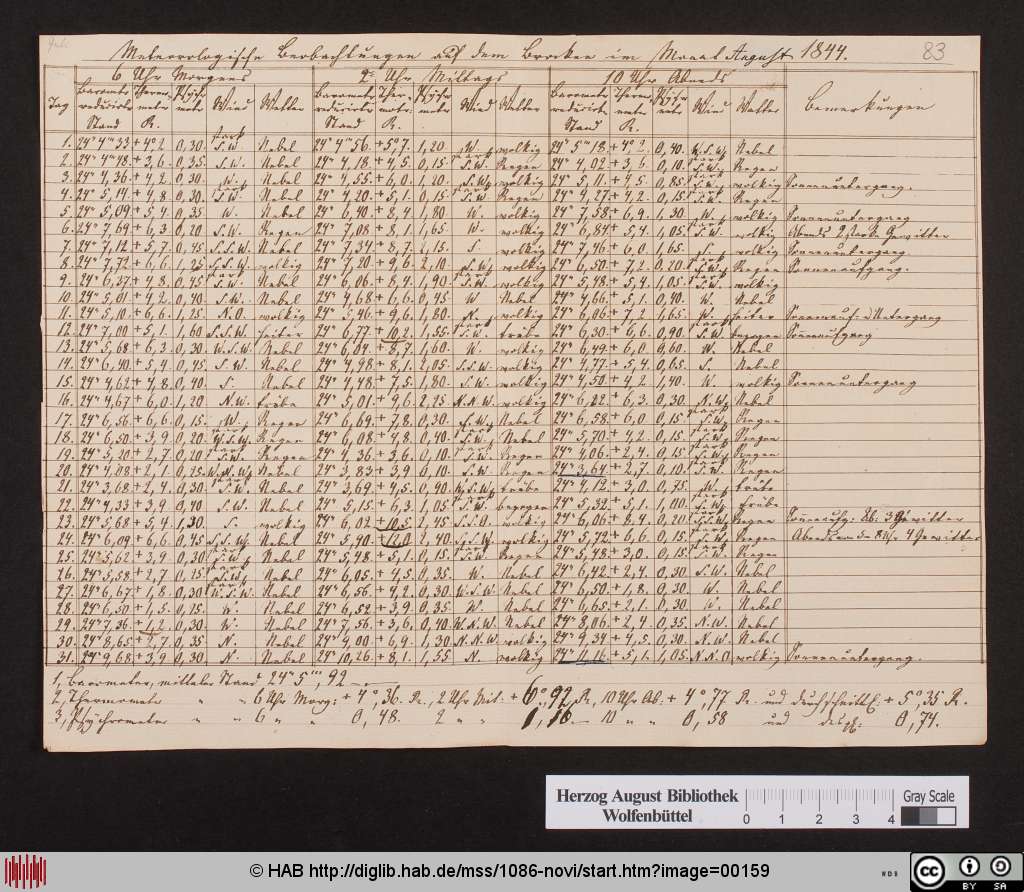 Meteorologische Beobachtungen auf dem Brocken im Monat August 1844. 83
6 Uhr Morgens 2 Uhr Mittags 10 Uhr Abends
Tag Barometer reducirter Stand Thermometer R. Psychrometer Wind Wetter Barometer reducirter Stand Thermometer R. Psychrometer Wind Wetter Barometer reducirter Stand Thermometer R. Psychrometer Wind Wetter Bemerkungen
1. 24" 4"'33 + 4°2 0,30 stark S.W. Nebel 24" 4"'56. + 5°7. 1,20 W. wolkig 24" 5"'18 + 4°2. 0,40. W.S.W. Nebel
2. 24" 4"'48. + 3,6. 0,35. S.W. Nebel 24" 4,18 + 4,5 0,15 stark S.W. Regen 24" 4,02 + 3,6 0,10. stark S.W. Regen
3. 24" 4,36. + 4,2 0,30 W. Nebel 24" 4,55. + 6,0. 1,20 S.W. wolkig 24" 5,11 + 4,5 0,85 stark S.W. wolkig Sonnenuntergang.
4. 24" 5,14 + 4,8 0,30 stark S.W. Nebel 24" 4,20 + 5,1 0,15 stark S.W. Regen 24" 4,27 + 4,2 0,15 stark S.W. Regen
5. 24" 5,09 + 5,4 0,35 W. Nebel 24" 6,40. + 8,4 1,80 W. wolkig 24" 7,58 + 6,9. 1,30 W. wolkig Sonnenuntergang
6. 24" 7,69 + 6,3 0,20 S.W. Regen 24" 7,08 + 8,1 1,65 W. wolkig 24" 6,84 + 5,4 1,05 stark S.W. wolkig Abends 2 starke Gewitter
7. 24" 7,12 + 5,7 0,45 S.S.W. Nebel 24" 7,34 + 8,7 2,15 S. wolkig 24" 7,46 + 6,0 1,65 S. wolkig Sonnenuntergang.
8. 24" 7,72 + 6,6 1,25 S.S.W. wolkig 24" 7,20 + 9,6 2,10 S.W. wolkig 24" 6,50 + 7,2 0,20 stark S.W. Regen Sonnenaufgang.
9. 24" 6,37 + 4,8 0,45 stark S.W. Nebel 24" 6,06. + 8,4 1,90 stark S.W. wolkig 24" 5,48 + 5,4 1,05 stark S.W. wolkig
10. 24" 5,01 + 4,2 0,40 S.W. Nebel 24" 4,68 + 6,6 0,45 W Nebel 24" 4,66 + 5,1 0,40 W. Nebel
11. 24" 5,10 + 6,6 1,25 N.O. wolkig 24" 5,46 + 9,6 1,80 N. wolkig 24" 6,06 + 7,2 1,65 W. heiter Sonnenauf- u. Untergang
12. 24" 7,00 + 5,1 1,60 S.S.W. heiter 24" 6,77 + 10,2 1,55 stark S.W. trübe 24" 6,30 + 6,6 0,90 stark S.W. bezogen Sonnenaufgang
13. 24" 5,68 + 6,3 0,30 W.S.W. Nebel 24" 6,04 + 8,7 1,60 W. wolkig 24" 6,49 + 6,0 0,60 W. Nebel
14. 24" 6,40 + 5,4 0,45 S.W. Nebel 24" 4,98 + 8,1 2,05 S.S.W. wolkig 24" 4,77 + 5,4 0,65 S. Nebel
15. 24" 4,62 + 4,8 0,40 S. Nebel 24" 4,48 + 7,5 1,80 S.W. wolkig 24" 4,50 + 4,2 1,40 W. wolkig Sonnenuntergang
16. 24" 4,67 + 6,0 1,20 N.W. trübe 24" 5,01 + 9,6 2,25 N.N.W. wolkig 24" 6,22 + 6,3 0,30 N.W. Nebel
17. 24" 6,56 + 6,6 0,15 W. Regen 24" 6,69 + 7,8 0,30 S.W. Nebel 24" 6,58 + 6,0 0,15 stark S.W. Regen
18. 24" 6,50 + 3,9 0,20 stark W.S.W. Regen 24" 6,08 + 4,8 0,40 stark S.W. Nebel 24" 5,70 + 4,2 0,15 stark S.W. Regen
19. 24" 5,20 + 2,7 0,20 stark S.W. Regen 24" 4,36 + 3,6 0,10 S.W. Regen 24" 4,06 + 2,4 0,15 stark S.W. Regen
20. 24" 4,08 + 2,1 0,25 W.N.W. Nebel 24" 3,83 + 3,9 0,10 S.W. Regen 24" 3,64 + 2,7 0,10 stark S.W. Regen
21. 24" 3,68 + 2,4 0,30 stark S.W. Nebel 24" 3,69 + 4,5 0,40 W.S.W. trübe 24" 4,12 + 3,0 0,75 W. trübe
22. 24" 4,33 + 3,9 0,40 S.W. Nebel 24" 5,15 + 6,3 1,05 stark S.W. bezogen 24" 5,32 + 5,1 1,00 stark S.W. trübe
23. 24" 5,68 + 5,4 1,30 S. wolkig 24" 6,02 + 10,5 2,45 S.S.O. wolkig 24" 6,06 + 8,4 0,20 stark S.S.W. Regen Sonnenaufg: Ab. 3 Gewitter
24. 24" 6,09 + 6,6 0,45 S.S.W. Nebel 24" 5,90 + 12,0 2,40 S.S.W. wolkig 24" 5,72 + 6,6 0,15 stark S.W. Regen Abends 4 Gewitter
25. 24" 5,62 + 3,9 0,30 stark S.W. Nebel 24" 5,48 + 5,1 0,15 stark S.W. Regen 24" 5,48 + 3,0 0,15 stark S.W. Regen
26. 24" 5,58 + 2,7 0,25 stark S.W. Nebel 24" 6,05 + 4,5 0,35 W. Nebel 24" 6,42 + 2,4 0,30 S.W. Nebel
27. 24" 6,67 + 1,8 0,30 stark W.S.W. Nebel 24" 6,56 + 4,2 0,30 W.S.W. Nebel 24" 6,50 + 1,8 0,30 W. Nebel
28. 24" 6,50 + 1,5 0,25 W. Nebel 24" 6,52 + 3,9 0,35 W. Nebel 24" 6,65 + 2,1 0,30 W. Nebel
29. 24" 7,36 + 1,2 0,30 W. Nebel 24" 7,56 + 3,6 0,40 W.N.W. Nebel 24" 8,06 + 2,4 0,35 N.W. Nebel
30. 24" 8,65 + 2,7 0,35 N. Nebel 24" 9,00 + 6,9 1,30 N.N.W. wolkig 24" 9,34 + 4,5 0,30 N.W. Nebel
31. 24" 9,68 + 3,9 0,30 N. Nebel 24" 10,26 + 8,1 1,55 N. wolkig 24" 11,16 + 5,1 1,05 N.N.O. wolkig Sonnenuntergang.
1, Barometer, mittelster Stand 24" 5"', 92
2, Thermometer " " 6 Uhr Morg: + 4°, 36. R., 2 Uhr Mit. + 6°, 92 R, 10 Uhr Ab. + 4°, 77 R. und durchschnittl. + 5°, 35 R.
3, Psychrometer " " 6 " " 0, 48. 2 " " 1, 16 10 " " 0, 58 und desgl. 0, 74.
Herzog August Bibliothek
Wolfenbüttel
0 1 2 3 4
Gray Scale
© HAB http://diglib.hab.de/mss/1086-novi/start.htm?image=00159
WDB
cc BY SA